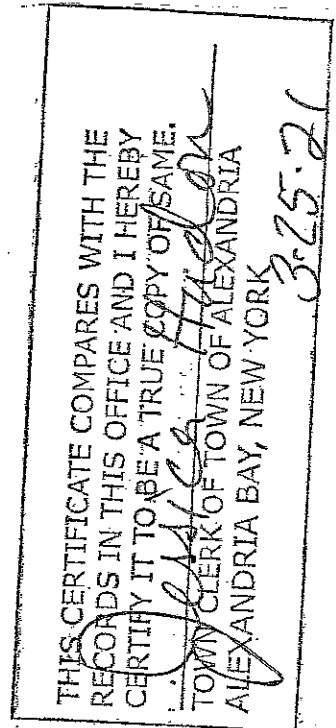 THIS CERTIFICATE COMPARES WITH THE
RECORDS IN THIS OFFICE AND I HEREBY
CERTIFY IT TO BE A TRUE COPY OF SAME.
Jessica
TOWN CLERK OF TOWN OF ALEXANDRIA
ALEXANDRIA BAY, NEW YORK
3-25-21